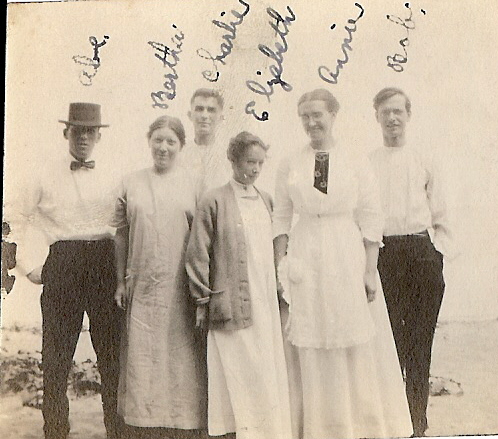 Abe.
Berthie.
Charlie
Elizabeth
Annie
Bob.